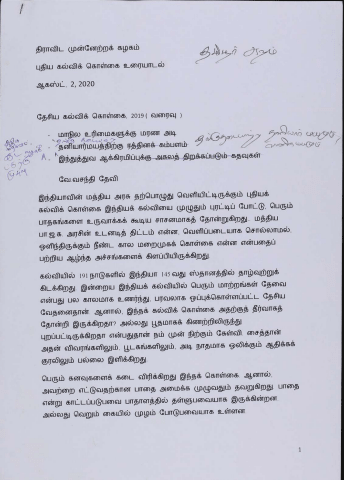 1
திராவிட முன்னேற்றக் கழகம்
புதிய கல்விக் கொள்கை உரையாடல்
ஆகஸ்ட், 2, 2020
தேசிய கல்விக் கொள்கை, 2019 ( வரைவு )
- மாநில உரிமைகளுக்கு மரண அடி
- தனியார்மயத்திற்கு ரத்தினக் கம்பளம்
- இந்துத்துவ ஆக்கிரமிப்புக்கு அகலத் திறக்கப்படும் கதவுகள்
வே.வசந்தி தேவி
இந்தியாவின் மத்திய அரசு தற்பொழுது வெளியிட்டிருக்கும் புதியக்
கல்விக் கொள்கை இந்தியக் கல்வியை முழுதும் புரட்டிப் போட்டு, பெரும்
பாதகங்களை உருவாக்கக் கூடிய சாசனமாகத் தோன்றுகிறது. மத்திய
பா.ஜ.க. அரசின் உடனடித் திட்டம் என்ன, வெளிப்படையாக சொல்லாமல்,
ஒளிந்திருக்கும் நீண்ட கால மறைமுகக் கொள்கை என்ன என்பதைப்
பற்றிய ஆழ்ந்த அச்சங்களைக் கிளப்பியிருக்கிறது.
கல்வியில் 191 நாடுகளில் இந்தியா 145 வது ஸ்தானத்தில் தாழ்வுற்றுக்
கிடக்கிறது. இன்றைய இந்தியக் கல்வியில் பெரும் மாற்றங்கள் தேவை
என்பது பல காலமாக உணர்ந்து, பரவலாக ஒப்புக்கொள்ளப்பட்ட தேசிய
வேதனைதான். ஆனால், இந்தக் கல்விக் கொள்கை அதற்குத் தீர்வாகத்
தோன்றி இருக்கிறதா? அல்லது பூதமாகக் கிணற்றிலிருந்து
புறப்பட்டிருக்கிறதா என்பதுதான் நம் முன் நிற்கும் கேள்வி. சைத்தான்
அதன் விவரங்களிலும், பூடகங்களிலும், அடி நாதமாக ஒலிக்கும் ஆதிக்கக்
குரலிலும் பல்லை இளிக்கிறது.
பெரும் கனவுகளைக் கடை விரிக்கிறது இந்தக் கொள்கை. ஆனால்,
அவற்றை எட்டுவதற்கான பாதை அமைக்க முழுவதும் தவறுகிறது. பாதை
என்று காட்டப்படுபவை பாதாளத்தில் தள்ளுபவையாக இருக்கின்றன.
அல்லது வெறும் கையில் முழம் போடுபவையாக உள்ளன.
1